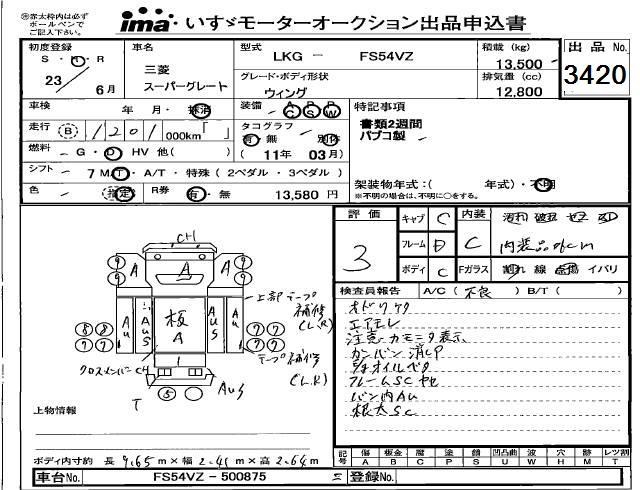 ※赤太枠内は必ず
ボールペンで
ご記入下さい。
ima いすゞモーターオークション出品申込書
出品No.
3420
初度登録
S・H・R
23 6月
車名
三菱
スーパーグレート
型式
LKG － FS54VZ
積載(kg)
13,500
グレード・ボディ形状
ウィング
排気量(cc)
12,800
車検 年 月・抹消
装備 AC PS PW
特記事項
書類2週間
パブコ製
走行 B 1201 000km「 」
タコグラフ
有・無 別体
(11年 03月)
燃料 － G・D HV 他( )
シフト － 7 MT・A/T・特殊(2ペダル・3ペダル)
架装物年式:( 年式)・不明
※不明の場合は、不明に○をする。
色 － 指定 R券 有・無 13,580 円
評価
3
キャブ C
フレーム D
ボディ C
内装 C
内装品欠cm
Fガラス 割れ 線 点傷 イバリ
検査員報告 A/C(不良) B/T( )
エアモレ
注意カモニタ表示
カンバン消しP
ショオイルベタ
フレームSCサビ
バン内AU
根太SC
CH
A
A
A
板
A
AU
AUS
AUS
AU
上部テープ
補修
(L.R)
テープ補修
(L.R)
クロスメンバーCH
T
AUS
上物情報
ボディ内寸約 長 9.65m×幅 2.41m×高 2.64m
記号 傷 A 板金 B 腐 C 塗 P 錆 S 凹 U 凹凸曲 W 波 H 穴 M 跡 レツ割 T
車台No. FS54VZ － 500875
登録No.